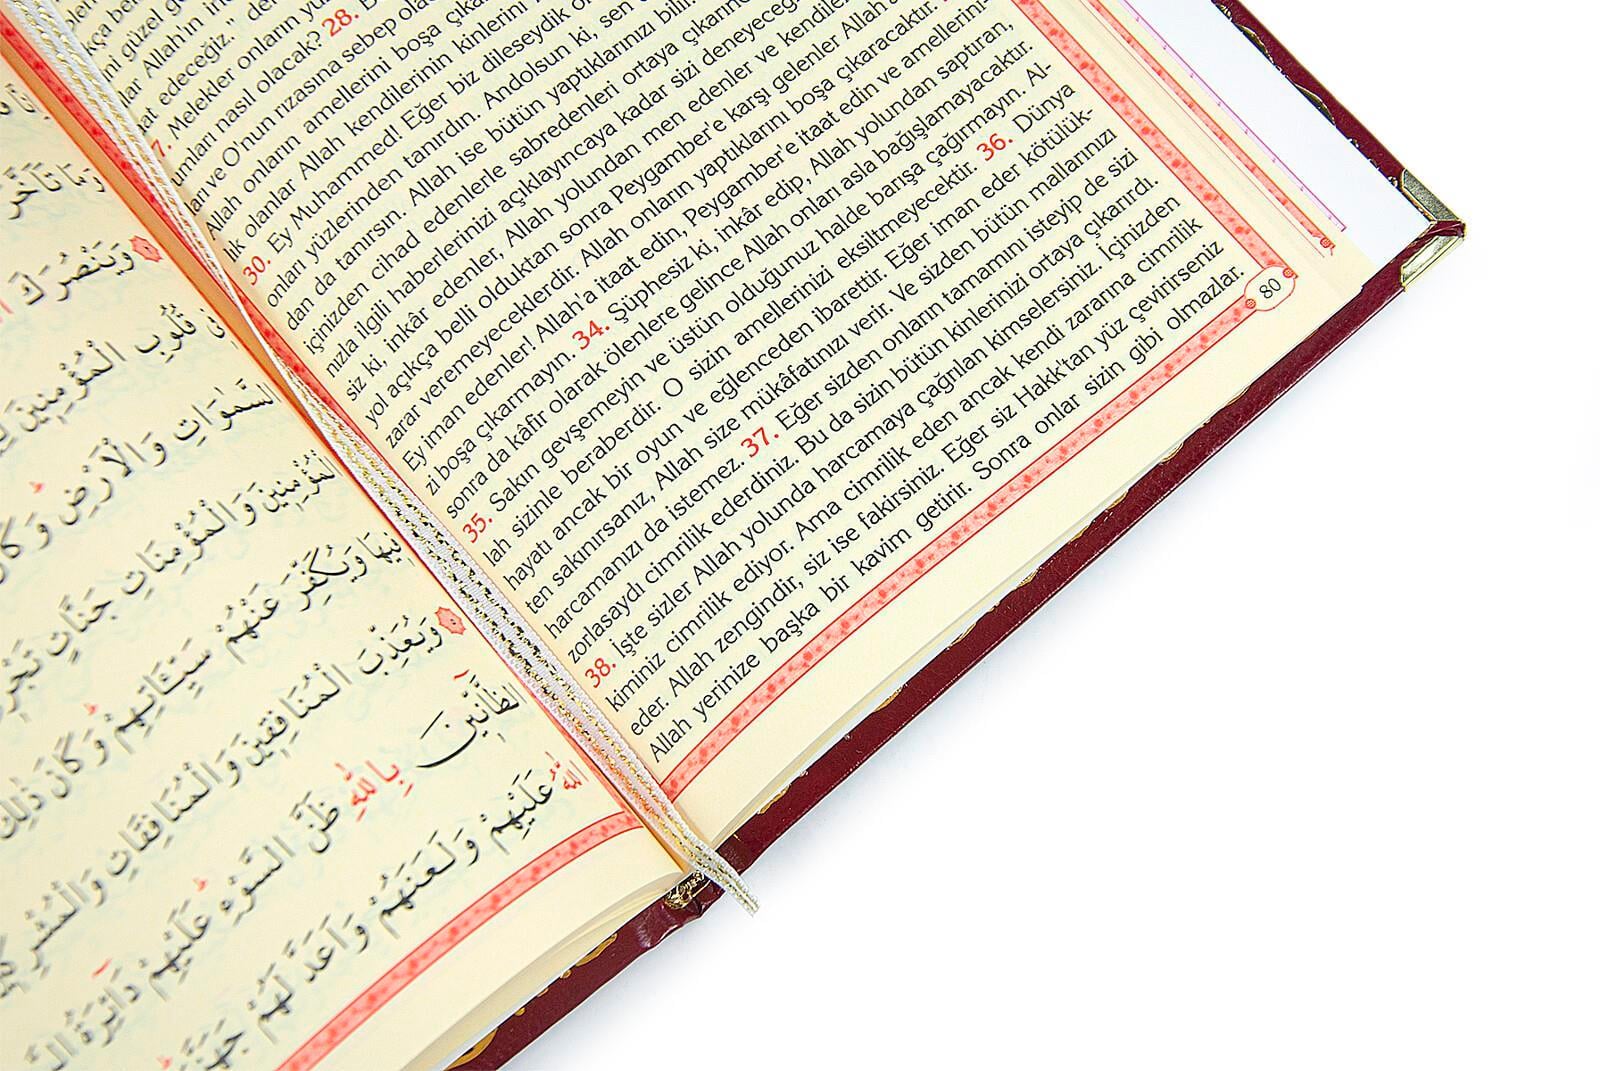 ni güzel
Allah'ın
edeceğiz," der
7. Melekler onların
nasıl olacak? 28.
ve O'nun rızasına sebep
Allah onların amellerini boşa
olanlar Allah kendilerinin kinlerini
30. Ey Muhammed! Eğer biz dileseydik
onları yüzlerinden tanırdın. Andolsun ki, sen
dan da tanırsın. Allah ise bütün yaptıklarınızı bilir.
içinizden cihad edenlerle sabredenleri ortaya
nızla ilgili haberlerinizi açıklayıncaya kadar sizi
siz ki, inkâr edenler, Allah yolundan men edenler ve
yol açıkça belli olduktan sonra Peygamber'e karşı gelenler Allah'a
zarar veremeyeceklerdir. Allah onların yaptıklarını boşa çıkaracaktır.
Ey iman edenler! Allah'a itaat edin, Peygamber'e itaat edin ve amellerini-
zi boşa çıkarmayın. 34. Şüphesiz ki, inkâr edip, Allah yolundan saptıran,
sonra da kâfir olarak ölenlere gelince Allah onları asla bağışlamayacaktır.
35. Sakın gevşemeyin ve üstün olduğunuz halde barışa çağırmayın. Al-
lah sizinle beraberdir. O sizin amellerinizi eksiltmeyecektir. 36. Dünya
hayatı ancak bir oyun ve eğlenceden ibarettir. Eğer iman eder kötülük-
ten sakınırsanız, Allah size mükâfatınızı verir. Ve sizden bütün mallarınızı
harcamanızı da istemez. 37. Eğer sizden onların tamamını isteyip de sizi
zorlasaydı cimrilik ederdiniz. Bu da sizin bütün kinlerinizi ortaya çıkarırdı.
38. İşte sizler Allah yolunda harcamaya çağrılan kimselersiniz. İçinizden
kiminiz cimrilik ediyor. Ama cimrilik eden ancak kendi zararına cimrilik
eder. Allah zengindir, siz ise fakirsiniz. Eğer siz Hakk'tan yüz çevirirseniz
Allah yerinize başka bir kavim getirir. Sonra onlar sizin gibi olmazlar.
80
وَمَا تَأَخَّرَ
وَيَنْصُرَكَ
قُلُوبِ الْمُؤْمِنِينَ
السَّمٰوَاتِ وَالْاَرْضِ
الْمُؤْمِنِينَ وَالْمُؤْمِنَاتِ جَنَّاتٍ
وَيُكَفِّرَ عَنْهُمْ سَيِّئَاتِهِمْ وَكَانَ ذٰلِكَ
وَيُعَذِّبَ الْمُنَافِقِينَ وَالْمُنَافِقَاتِ
الظَّٓانِّينَ بِاللّٰهِ ظَنَّ السَّوْءِ عَلَيْهِمْ دَٓائِرَةُ
اللّٰهُ عَلَيْهِمْ وَلَعَنَهُمْ وَاَعَدَّ لَهُمْ جَهَنَّمَ